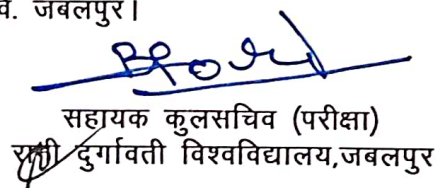 व. जबलपुर।
सहायक कुलसचिव (परीक्षा)
रानी दुर्गावती विश्वविद्यालय,जबलपुर